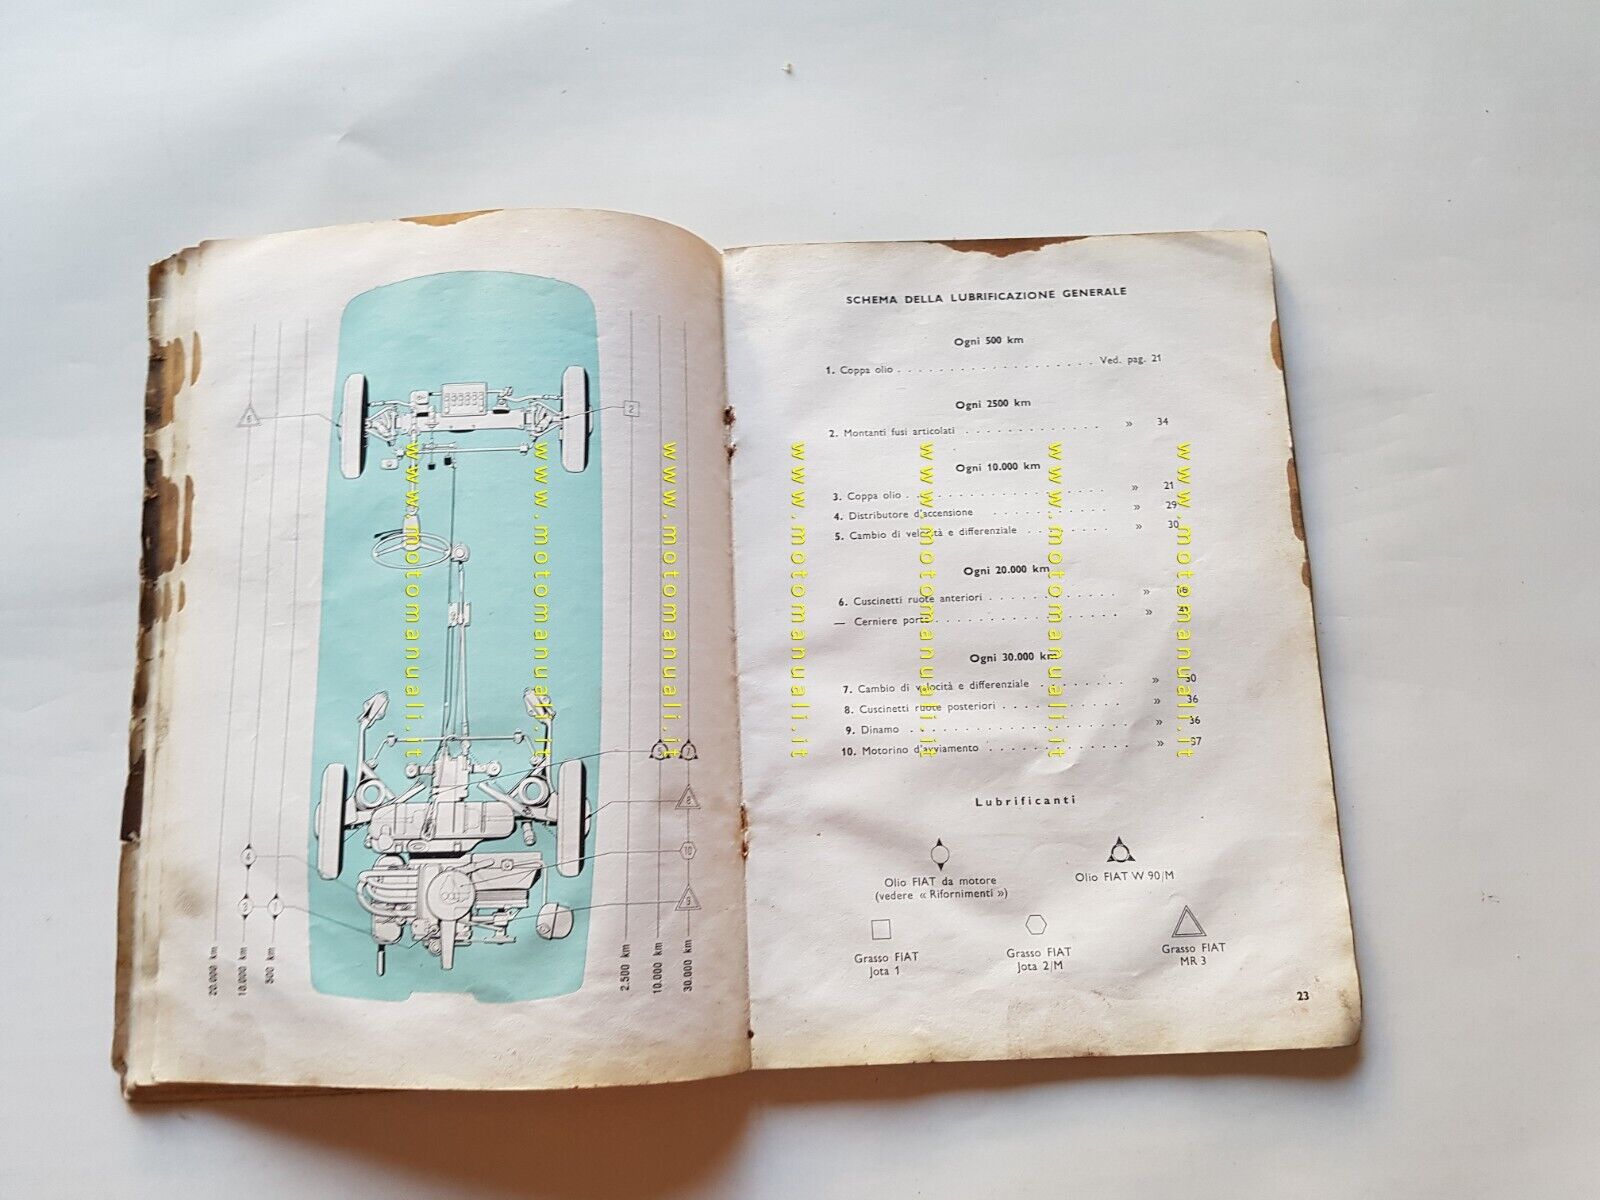 6
2
5
7
8
4
10
3
1
9
20.000 km
10.000 km
500 km
2.500 km
10.000 km
30.000 km
SCHEMA DELLA LUBRIFICAZIONE GENERALE
Ogni 500 km
1. Coppa olio . . . . . . . . . . . . . . . . . . Ved. pag. 21
Ogni 2500 km
2. Montanti fusi articolati . . . . . . . . . . . . . » 34
Ogni 10.000 km
3. Coppa olio . . . . . . . . . . . . . . . . . . » 21
4. Distributore d'accensione . . . . . . . . . . . . » 29
5. Cambio di velocità e differenziale . . . . . . . . » 30
Ogni 20.000 km
6. Cuscinetti ruote anteriori . . . . . . . . . . . . »
— Cerniere porte . . . . . . . . . . . . . . . . »
Ogni 30.000 km
7. Cambio di velocità e differenziale . . . . . . . . » 30
8. Cuscinetti ruote posteriori . . . . . . . . . . . » 36
9. Dinamo . . . . . . . . . . . . . . . . . . » 36
10. Motorino d'avviamento . . . . . . . . . . . . » 37
Lubrificanti
Olio FIAT da motore
(vedere « Rifornimenti »)
Olio FIAT W 90/M
Grasso FIAT
Jota 1
Grasso FIAT
Jota 2/M
Grasso FIAT
MR 3
23
www.motomanuali.it
www.motomanuali.it
www.motomanuali.it
www.motomanuali.it
www.motomanuali.it
www.motomanuali.it
www.motomanuali.it